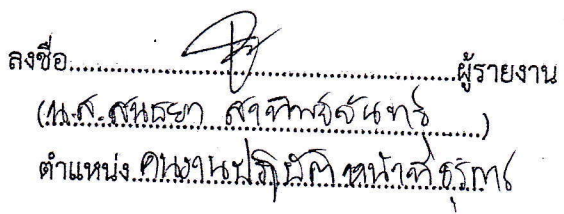 ลงชื่อ........................................................ผู้รายงาน
(น.ส.สนธยา สาทิพย์จันทร์)
ตำแหน่ง คนงานปฏิบัติหน้าที่ธุรการ